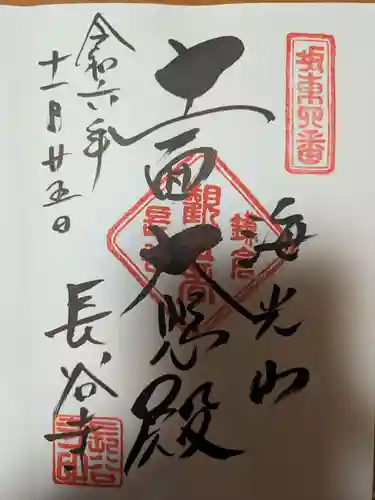 坂東四番
海光山
十一面大悲殿
鎌倉
観世音
長谷
令和六年
十一月廿五日
長谷寺